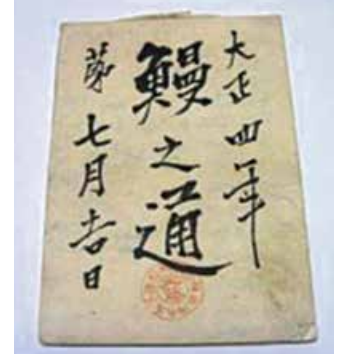 大正四年
鰻之通
第七月吉日